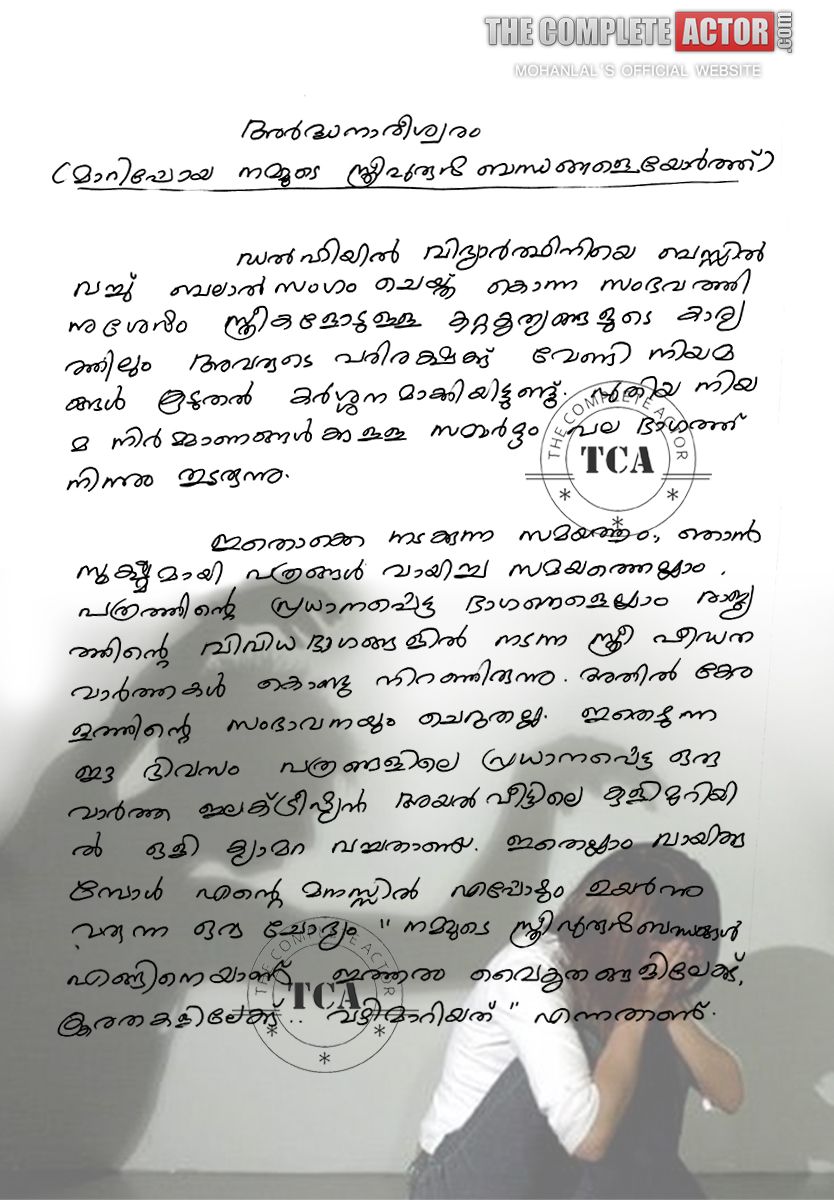 THE COMPLETE ACTOR.com
MOHANLAL'S OFFICIAL WEBSITE
അർദ്ധനാരീശ്വരം
(മാറിപ്പോയ നമ്മുടെ സ്ത്രീപുരുഷൻ ബന്ധങ്ങളെയോർത്ത്)
ഡൽഹിയിൽ വിദ്യാർത്ഥിനിയെ ബസ്സിൽ
വച്ച് ബലാൽസംഗം ചെയ്ത് കൊന്ന സംഭവത്തി
നുശേഷം സ്ത്രീകളോടുള്ള കുറ്റകൃത്യങ്ങളുടെ കാര്യ
ത്തിലും അവരുടെ പരിരക്ഷക്കു വേണ്ടി നിയമ
ങ്ങൾ കൂടുതൽ കർശ്ശനമാക്കിയിട്ടുണ്ട്. പുതിയ നിയ
മ നിർമ്മാണങ്ങൾക്കുള്ള സമ്മർദ്ദം പല ഭാഗത്ത്
നിന്നും തുടരുന്നു.
ഇതൊക്കെ നടക്കുന്ന സമയത്തും, ഞാൻ
സൂക്ഷ്മമായി പത്രങ്ങൾ വായിച്ച സമയത്തെല്ലാം,
പത്രത്തിന്റെ പ്രധാനപ്പെട്ട ഭാഗങ്ങളെല്ലാം രാജ്യ
ത്തിന്റെ വിവിധ ഭാഗങ്ങളിൽ നടന്ന സ്ത്രീ പീഡന
വാർത്തകൾ കൊണ്ടു നിറഞ്ഞിരുന്നു. അതിൽ കേര
ളത്തിന്റെ സംഭാവനയും ചെറുതല്ല. ഇതെഴുതുന്ന
ഈ ദിവസം പത്രങ്ങളിലെ പ്രധാനപ്പെട്ട ഒരു
വാർത്ത ഇലക്ട്രീഷ്യൻ അയൽ വീട്ടിലെ കുളിമുറിയി
ൽ ഒളി ക്യാമറ വച്ചതാണ്. ഇതെല്ലാം വായിക്കു
മ്പോൾ എന്റെ മനസ്സിൽ എപ്പോഴും ഉയർന്നു
വരുന്ന ഒരു ചോദ്യം " നമ്മുടെ സ്ത്രീപുരുഷൻബന്ധങ്ങൾ
എങ്ങിനെയാണ് ഇത്തരം വൈകൃതങ്ങളിലേക്ക്,
ക്രൂരതകളിലേക്ക്.. വഴിമാറിയത് " എന്നതാണ്.
THE COMPLETE ACTOR
TCA
THE COMPLETE ACTOR
TCA